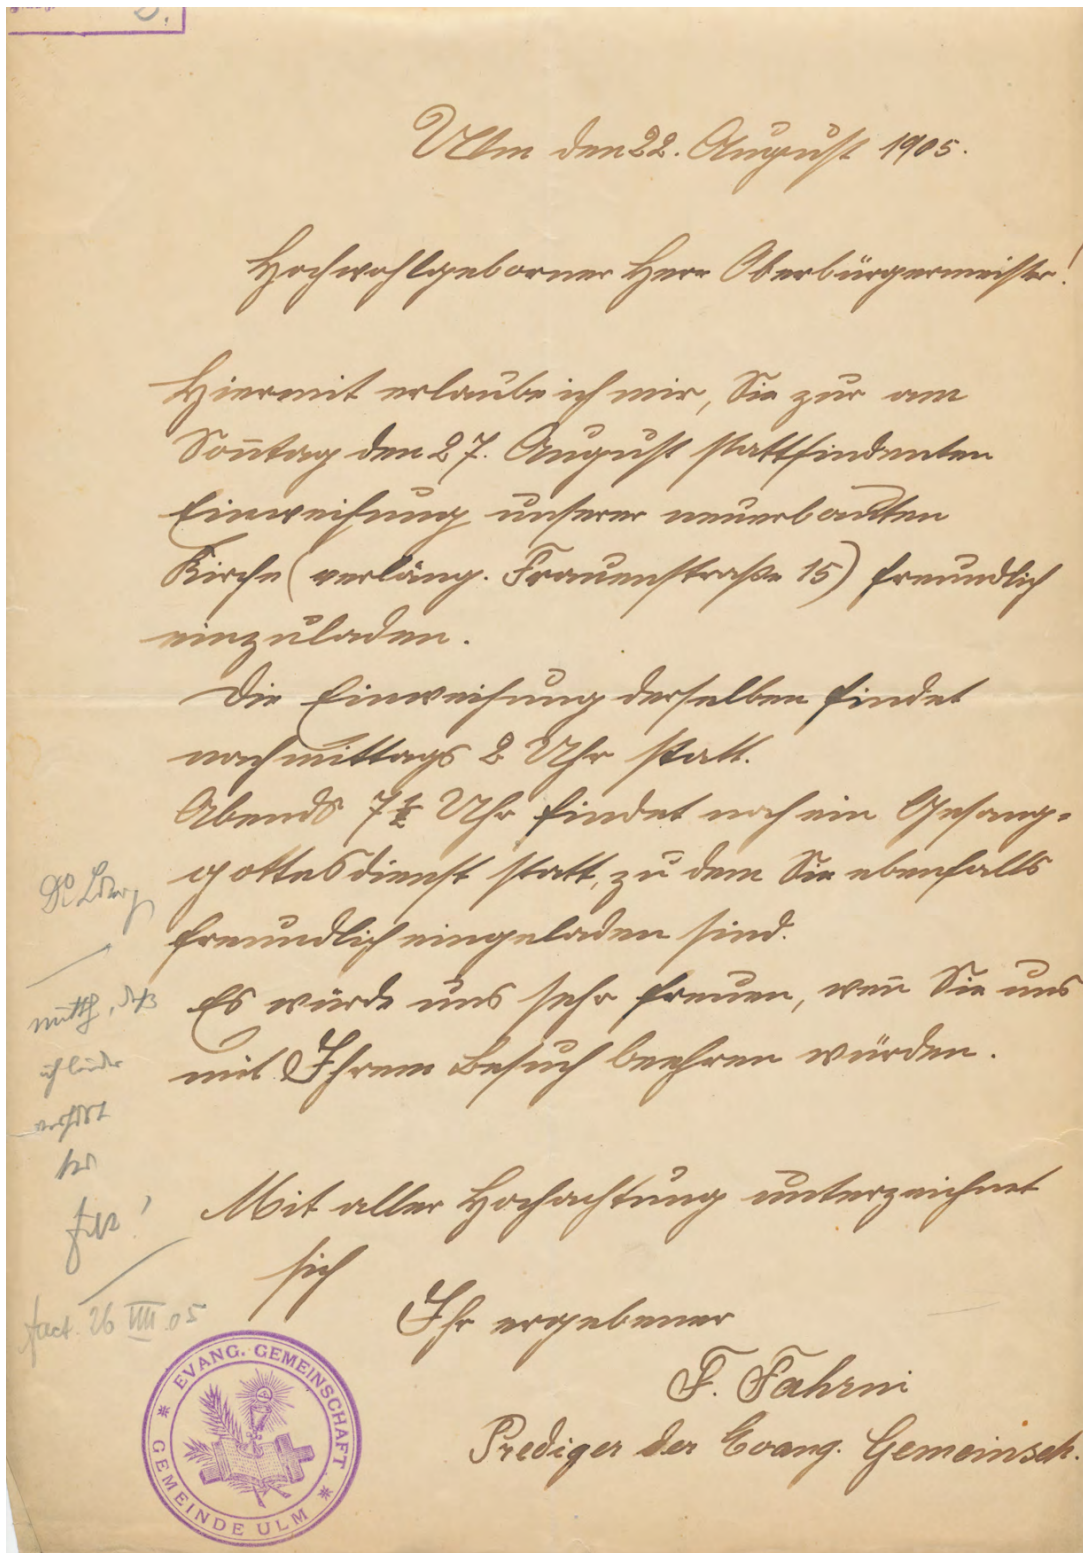 Ulm den 22. August 1905.
Hochwohlgeborner Herr Oberbürgermeister!
Hiermit erlaube ich mir, Sie zur am
Son̄tag den 27. August stattfindenten
Einweihung unserer neuerbauten
Kirche (verläng. Frauenstraße 15) freundlich
einzuladen.
Die Einweihung derselben findet
nachmittags 2 Uhr statt.
Abends 7 ½ Uhr findet noch ein Gesang-
gottesdienst statt, zu dem Sie ebenfalls
freundlich eingeladen sind.
Es würde uns sehr freuen, wen̄ Sie uns
mit Ihrem Besuch beehren würden.
Mit aller Hochachtung unterzeichnet
sich
Ihr ergebener
F. Fahrni
Prediger der Evang. Gemeinsch.
ich leider
fact. 26 VIII. 05
EVANG. GEMEINSCHAFT
GEMEINDE ULM